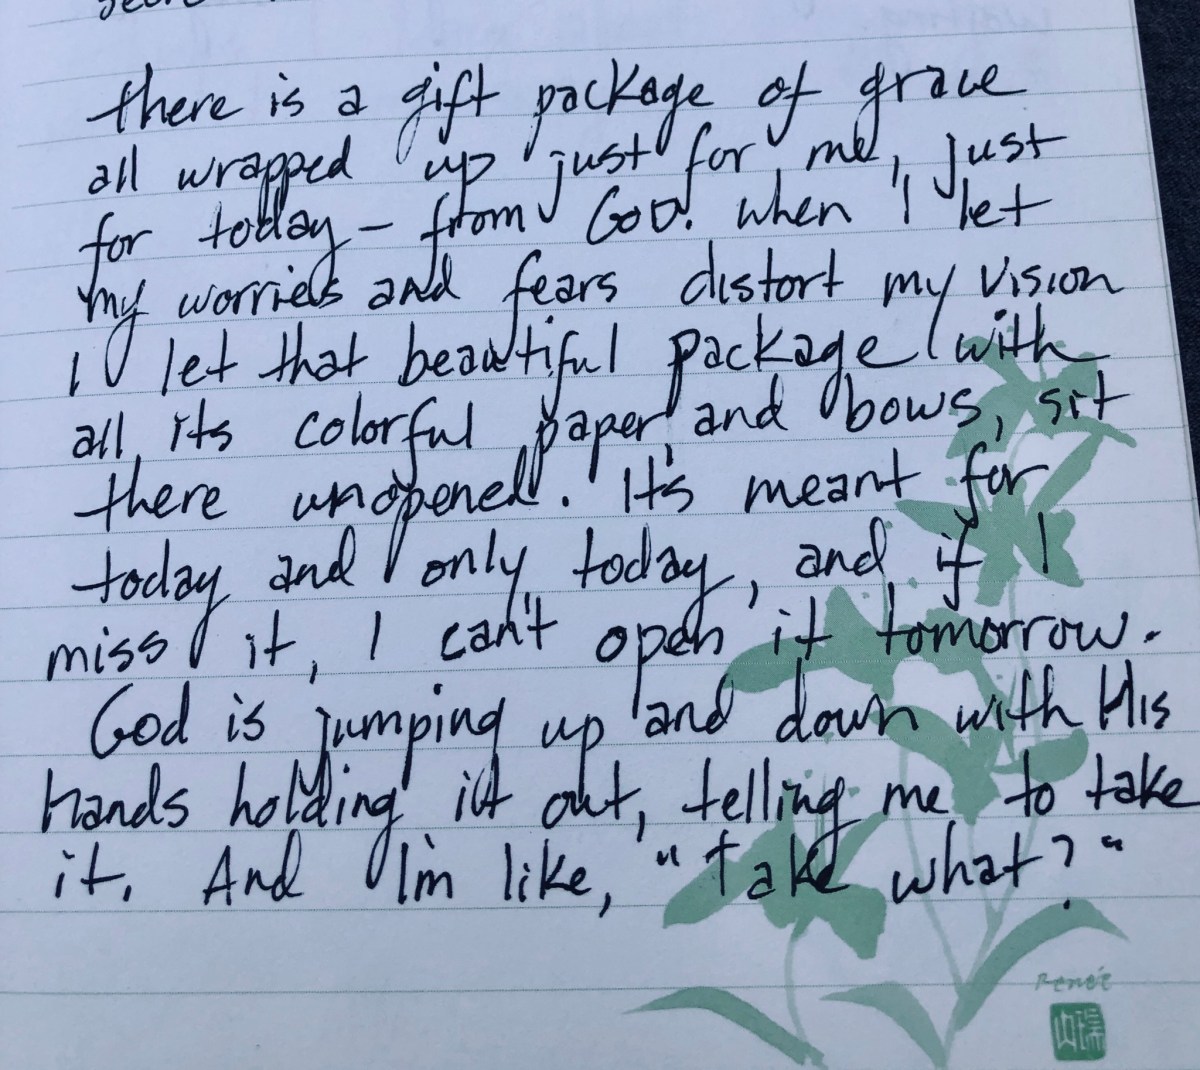 there is a gift package of grace
all wrapped up just for me, just
for today - from God. when I let
my worries and fears distort my vision
I let that beautiful package with
all its colorful paper and bows, sit
there unopened. It's meant for
today and only today, and if I
miss it, I can't open it tomorrow.
God is jumping up and down with His
Hands holding it out, telling me to take
it. And I'm like, "Take what?"
Renée